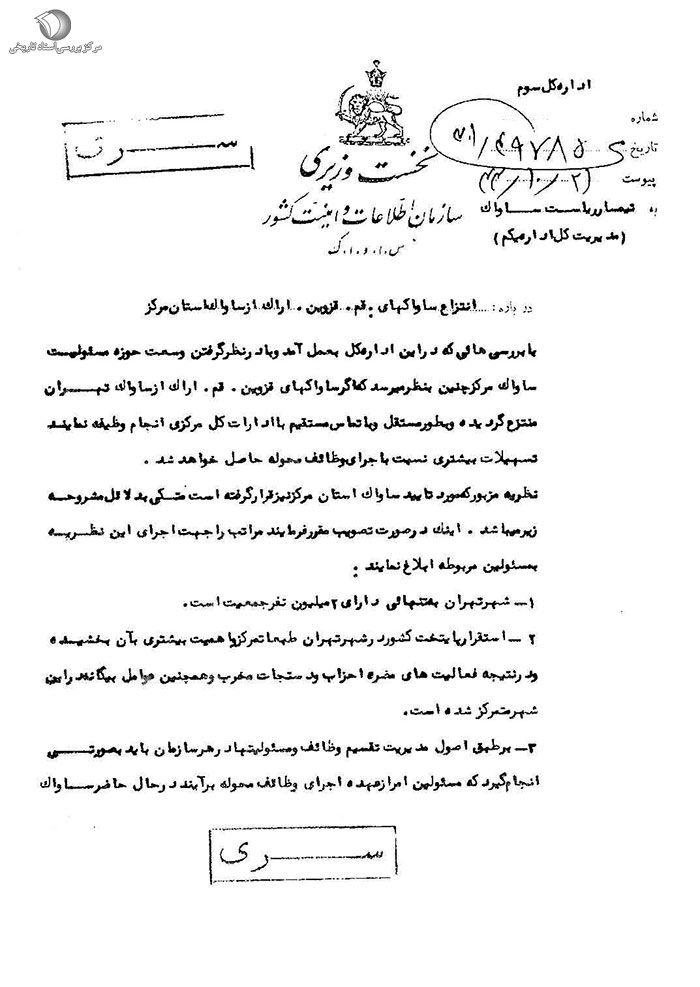 مرکز بررسی اسناد تاریخی
اداره کل سوم
شماره
تاریخ
پیوست
سری
نخست وزیری
سازمان اطلاعات و امنیت کشور
س.ا.و.ا.ک
به تیمسار ریاست ساواک
(مدیریت کل اداره یکم)
در باره: انتزاع ساواکهای: قم. قزوین. اراک از ساواک استان مرکز
با بررسی هائی که در این اداره کل بعمل آمد و با در نظر گرفتن وسعت حوزه مسئولیت
ساواک مرکز چنین بنظر میرسد که اگر ساواکهای قزوین. قم. اراک از ساواک تهران
منتزع گردیده و بطور مستقل و با تماس مستقیم با ادارات کل مرکزی انجام وظیفه نمایند
تسهیلات بیشتری نسبت با جرای وظائف محوله حاصل خواهد شد.
نظریه مزبور که مورد تایید ساواک استان مرکز نیز قرار گرفته است متکی بدلائل مشروحه
زیر میباشد. اینک در صورت تصویب مقرر فرمایند مراتب را جهت اجرای این نظریه
بمسئولین مربوطه ابلاغ نمایند:
۱ـ شهر تهران به تنهائی دارای ۲ میلیون نفر جمعیت است.
۲ ـ استقرار پایتخت کشور در شهر تهران طبعا تمرکز و اهمیت بیشتری بآن بخشیده
و در نتیجه فعالیت های مضره احزاب و دستجات مخرب و همچنین عوامل بیگانه در این
شهر متمرکز شده است.
۳ـ بر طبق اصول مدیریت تقسیم وظائف و مسئولیتها در هر سازمان باید بصورتی
انجام گیرد که مسئولین امر از عهده اجرای وظائف محوله برآیند در حال حاضر ساواک
سری